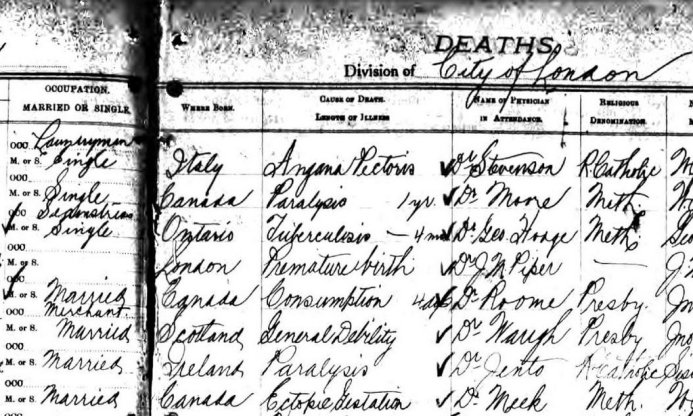 DEATHS
Division of City of London
OCCUPATION.
MARRIED OR SINGLE
WHERE BORN.
CAUSE OF DEATH.
LENGTH OF ILLNESS
NAME OF PHYSICIAN
IN ATTENDANCE.
RELIGIOUS
DENOMINATION.
OCC. Countryman
M. or S. Single Italy Angana Pectoris Dr Stevenson R. Catholic
OCC.
M. or S. Single Canada Paralysis 1 yr. Dr Moore Meth.
OCC. Seamstress
M. or S. Single Ontario Tuberculisis – 4 m Dr Geo. Hodge Meth.
OCC.
M. or S. London Premature birth Dr J. Piper —
OCC.
M. or S. Married Canada Consumption Dr Roome Presby.
OCC. Merchant
M. or S. Married Scotland General Debility Dr Waugh Presby
OCC.
M. or S. Married Ireland Paralysis Dr Jento R. Catholic
OCC.
M. or S. Married Canada Ectopic Gestation Dr Meek Meth.